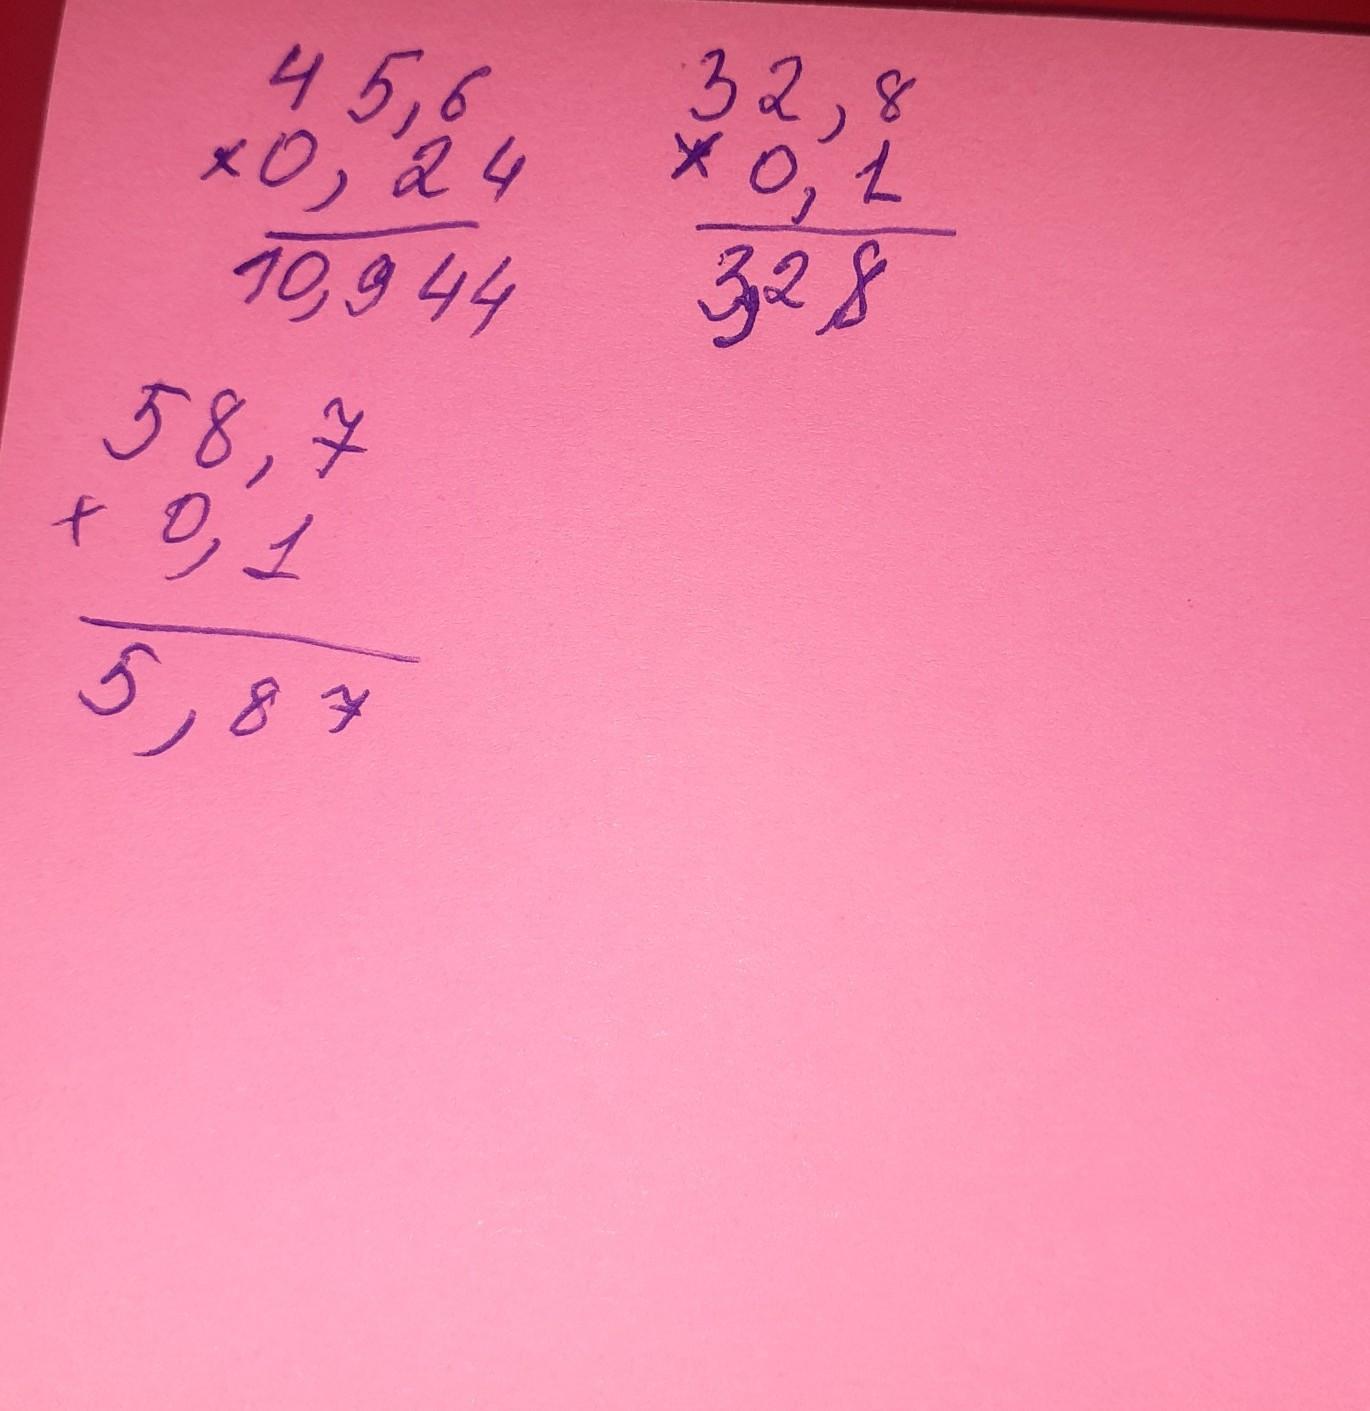 45,6
×0,24
10,944
32,8
× 0,1
3,28
58,7
× 0,1
5,87